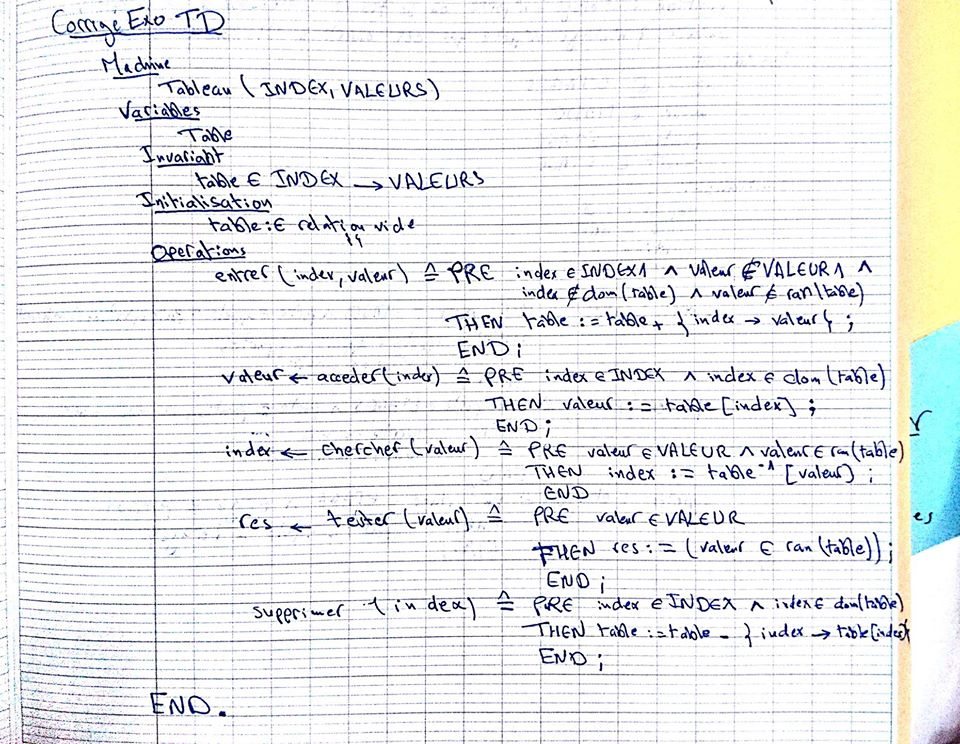 Corrigé Exo TD
Machine
Tableau ( INDEX, VALEURS)
Variables
Table
Invariant
table ∈ INDEX → VALEURS
Initialisation
table :∈ relation vide
{}
Operations
entrer (index, valeur) ≙ PRE index ∈ INDEX1 ∧ valeur ∉ VALEUR1 ∧
index ∉ dom(table) ∧ valeur ∉ ran(table)
THEN table := table + { index → valeur} ;
END ;
valeur ← acceder(index) ≙ PRE index ∈ INDEX ∧ index ∈ dom (table)
THEN valeur := table [index] ;
END ;
index ← chercher (valeur) ≙ PRE valeur ∈ VALEUR ∧ valeur ∈ ran(table)
THEN index := table⁻¹ [valeur] ;
END
res ← tester (valeur) ≙ PRE valeur ∈ VALEUR
THEN res := (valeur ∈ ran (table)) ;
END ;
supprimer (index) ≙ PRE index ∈ INDEX ∧ index ∈ dom(table)
THEN table := table - { index → table[index]}
END ;
END.
r
es